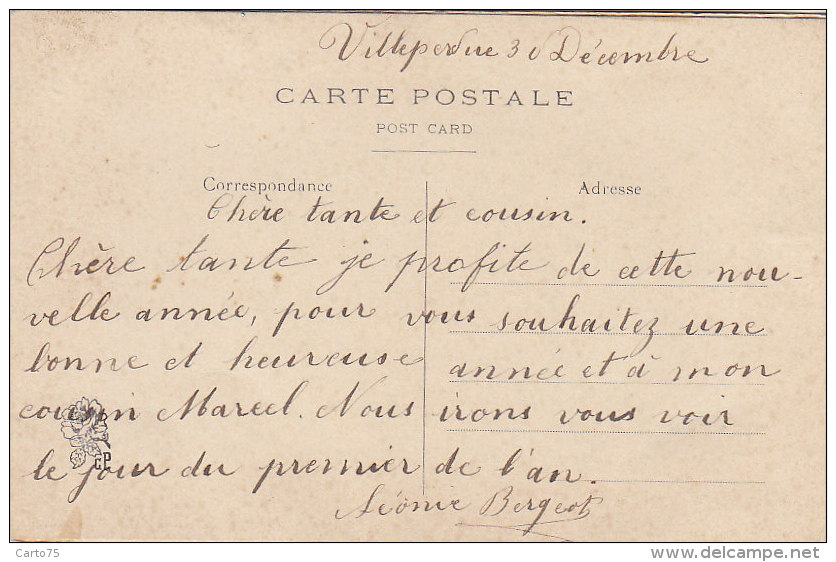 Villeperdue 30 Décembre
CARTE POSTALE
POST CARD
Correspondance
Adresse
Chère tante et cousin.
Chère tante je profite de cette nou-
velle année, pour vous souhaitez une
bonne et heureuse année et à mon
cousin Marcel. Nous irons vous voir
le jour du premier de l'an.
Léonie Bergeot
Carto75
delcampe.net